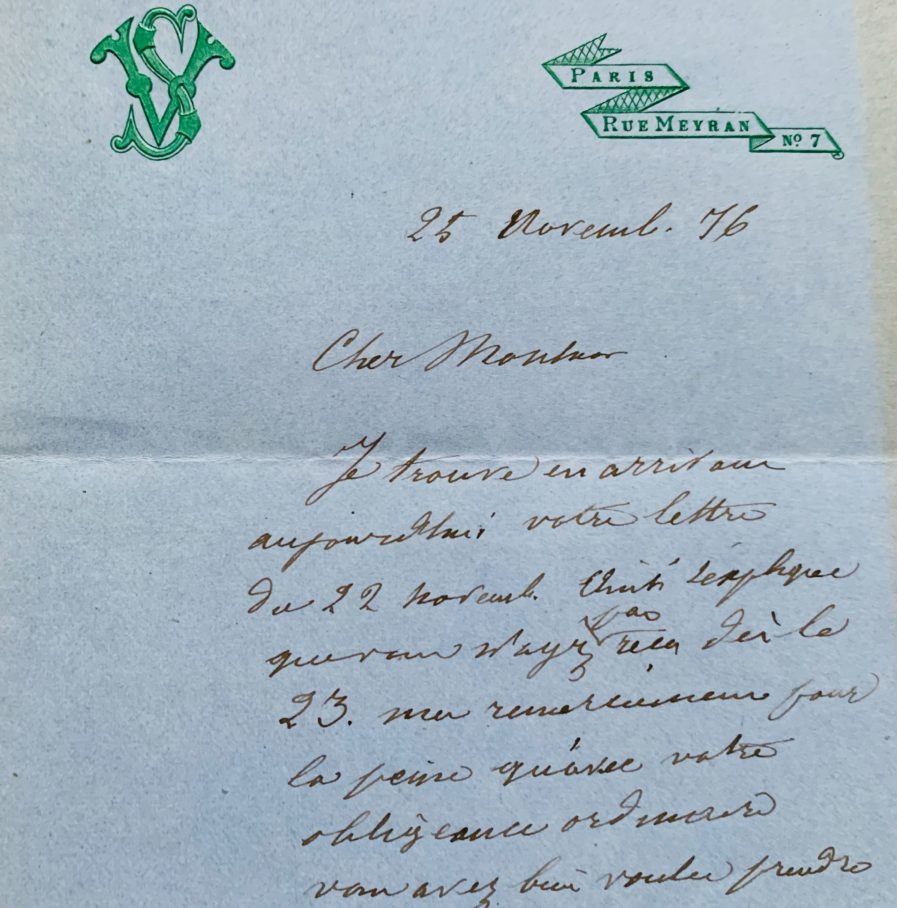 VS
PARIS
RUE MEYRAN
Nº 7
25 Novemb. 76
Cher Monsieur
Je trouve en arrivant
aujourd'hui votre lettre
du 22 novemb. Ainsi s'explique
que vous n'ayez pas reçu dès le
23. mes remerciements pour
la peine qu'avec votre
obligeance ordinaire
vous avez bien voulu prendre